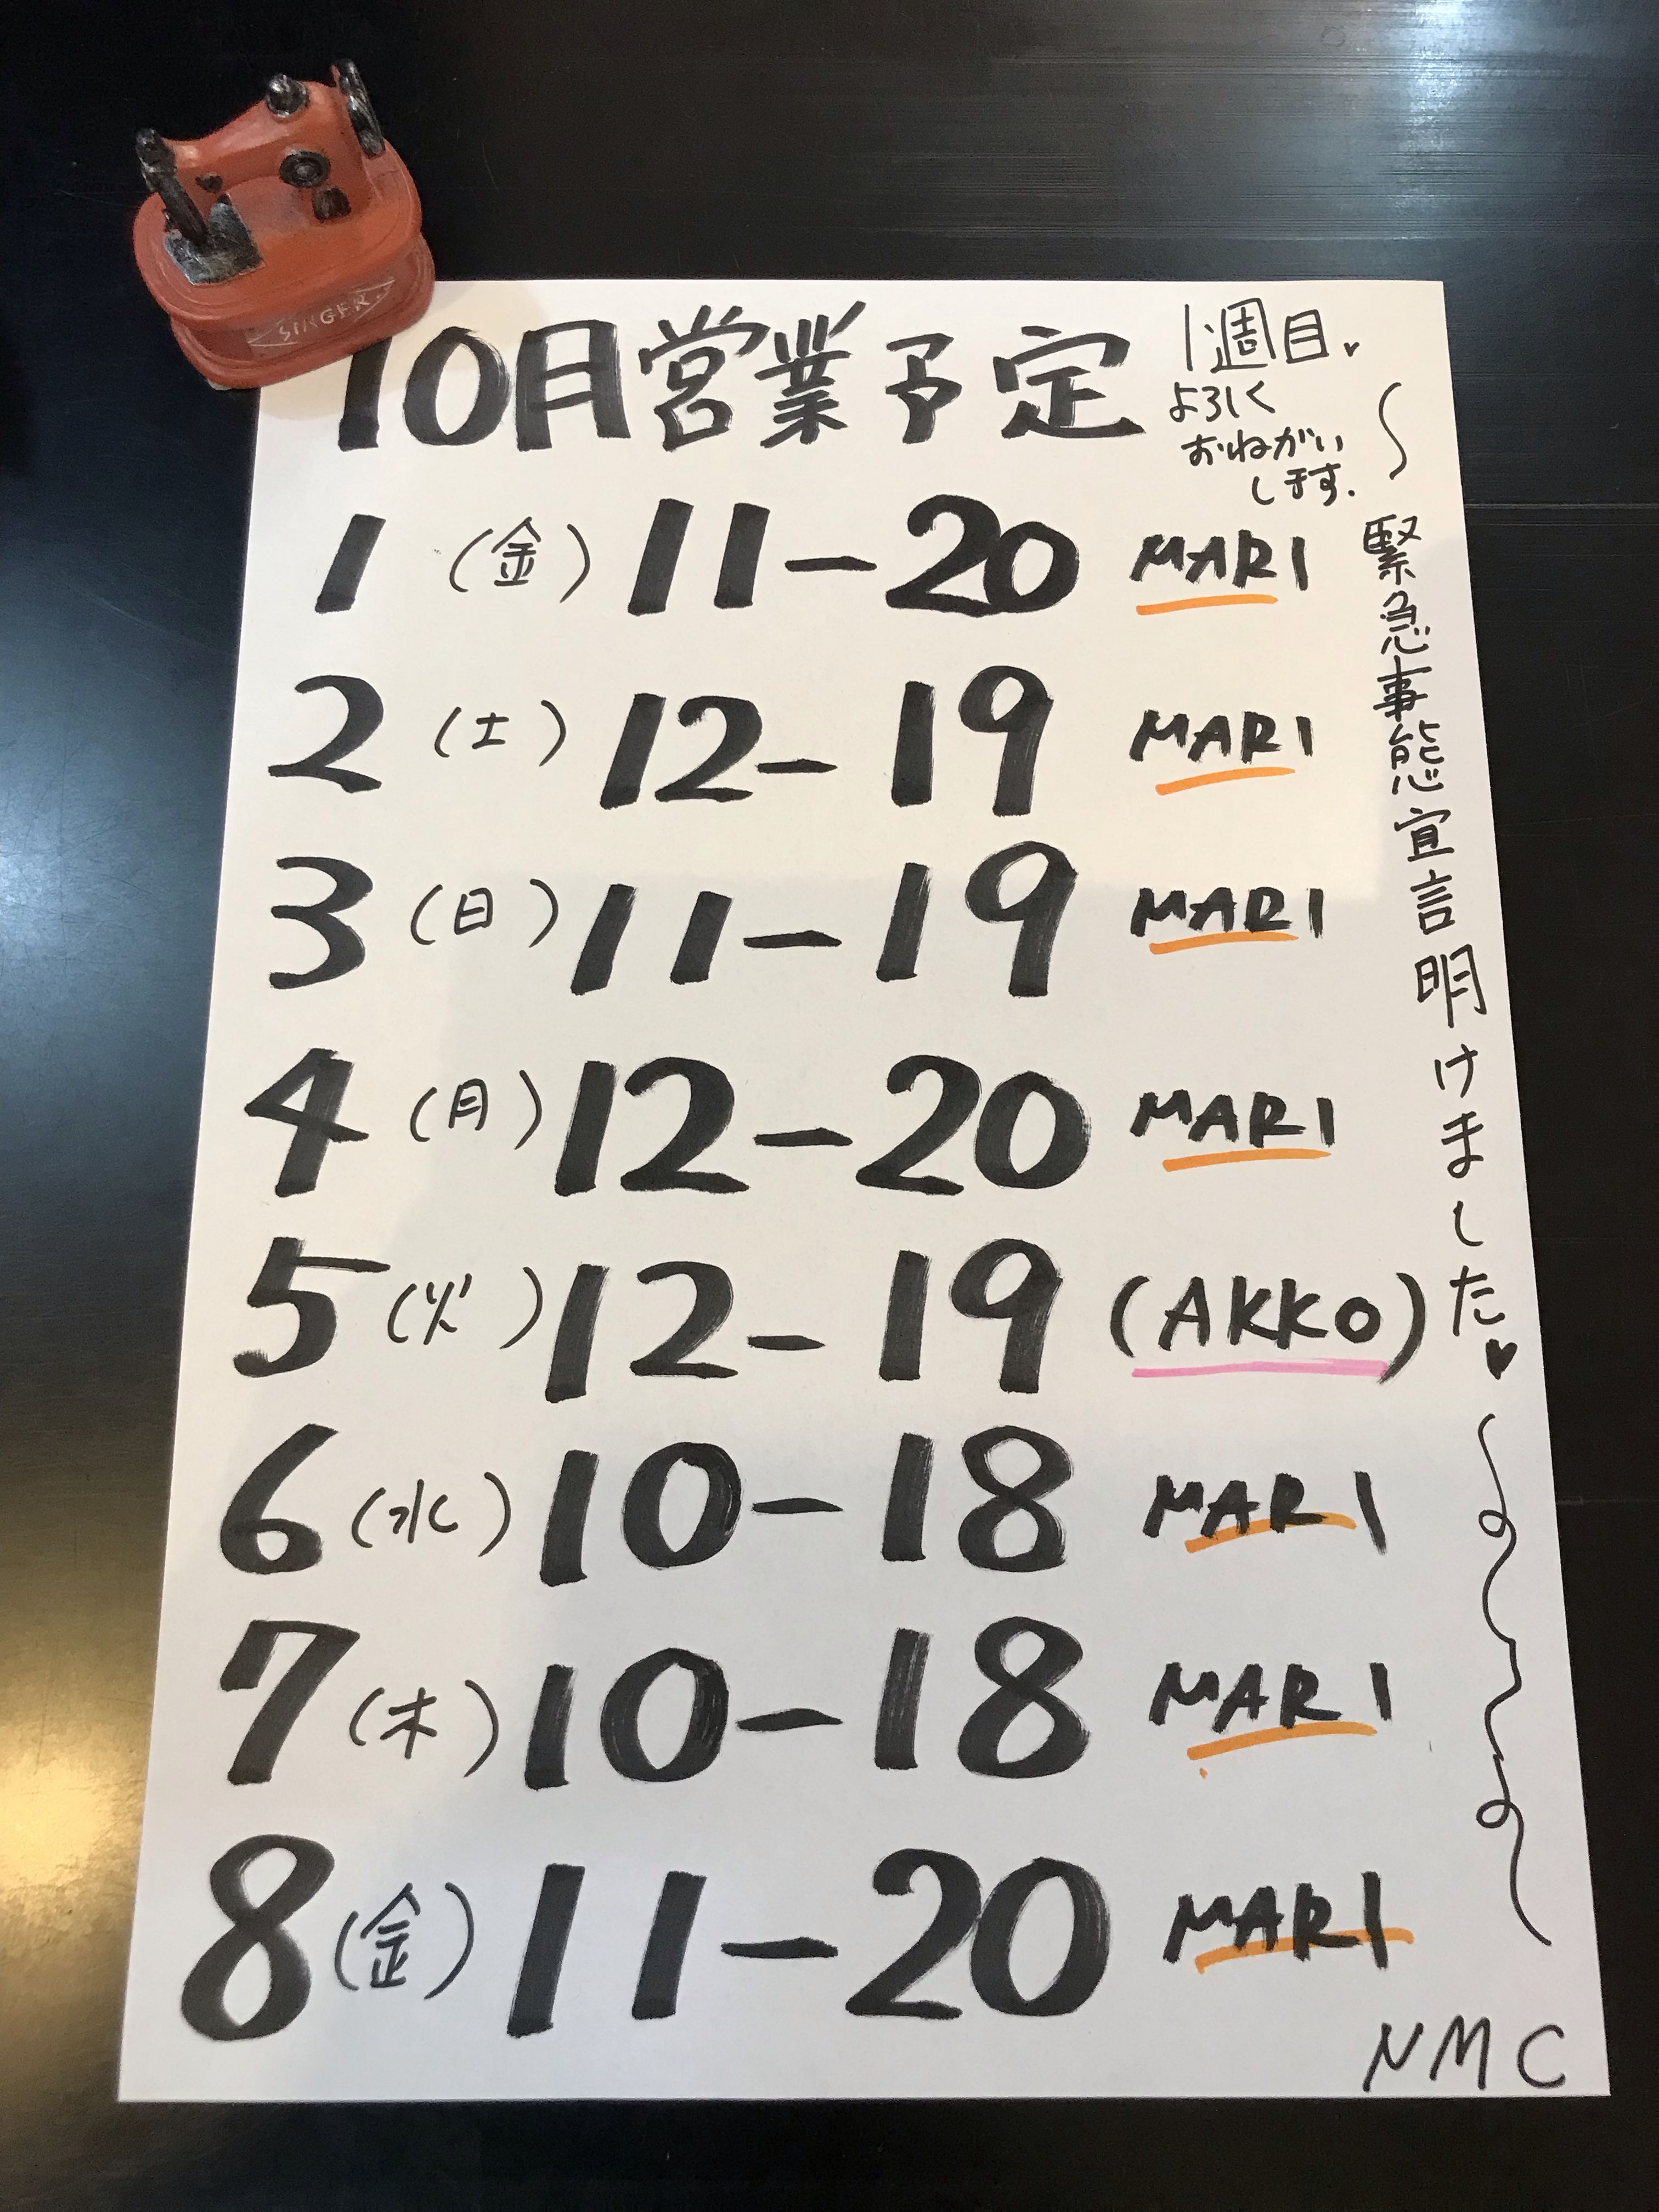 SINGER
10月営業予定
1週目
よろしく
おねがい
します.
1 (金) 11-20 MARI
2 (土) 12-19 MARI
3 (日) 11-19 MARI
4 (月) 12-20 MARI
5 (火) 12-19 (AKKO)
6 (水) 10-18 MARI
7 (木) 10-18 MARI
8 (金) 11-20 MARI
緊急事態宣言明けました♥
NMC